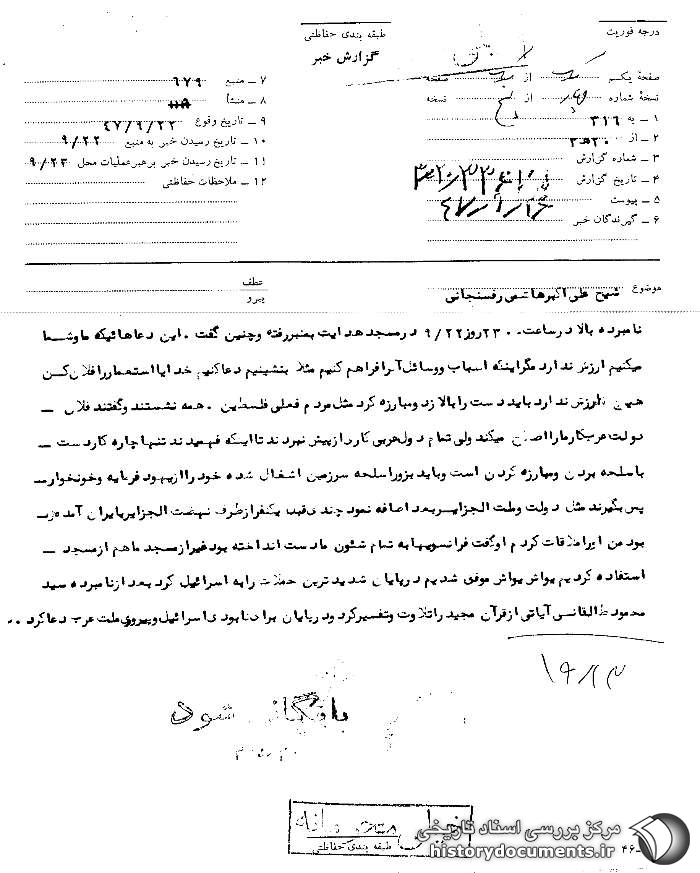 درجه فوریت
طبقه بندی حفاظتی
گزارش خبر
صفحهٔ یکم از صفحه
نسخهٔ شماره از نسخه
۱ ـ به ۳۱۶
۲ ـ از ۲۰ ه ۳
۳ ـ شماره گزارش
۴ ـ تاریخ گزارش
۵ ـ پیوست
۶ ـ گیرندگان خبر
۷ ـ منبع ۶۷۹
۸ ـ منشأ
۹ ـ تاریخ وقوع ۴۷/۹/۲۲
۱۰ ـ تاریخ رسیدن خبر به منبع ۹/۲۲
۱۱ ـ تاریخ رسیدن خبر برهبرعملیات محل ۹/۲۳
۱۲ ـ ملاحظات حفاظتی
موضوع شیخ علی اکبر هاشمی رفسنجانی
عطف
پیرو
نامبرده بالا در ساعت ۲۳۰ روز ۹/۲۲ در مسجد هدایت بمنبر رفته و چنین گفت . این دعاهائیکه ما و شما
میکنیم ارزش ندارد مگر اینکه اسباب و وسائل آنرا فراهم کنیم مثلا بنشینیم دعا کنیم خدایا استعمار را فلان کن
هیچ ارزش ندارد باید دست را بالا زد و مبارزه کرد مثل مردم فعلی فلسطین . همه نشستند و گفتند فلان ـ
دولت عرب کار ما را اصلاح میکند ولی تمام دول عربی کار از پیش نبردند تا اینکه فهمیدند تنها چاره کار دست ـ
باسلحه بردن و مبارزه کردن است و باید بزور اسلحه سرزمین اشغال شده خود را از یهود فرمایه و خونخوار ـ
پس بگیرند مثل دولت و ملت الجزایر بعد اضافه نمود چندی قبل یکنفر از طرف نهضت الجزایر بایران آمده
بود من او را ملاقات کردم او گفت فرانسویها به تمام شئون ما دست انداخته بود غیر از مسجد ما هم از مسجد ـ
استفاده کردیم یواش یواش موفق شدیم در پایان شدیدترین حملات را به اسرائیل کرد بعد از نامبرده سید
محمود طالقانی آیاتی از قرآن مجید را تلاوت و تفسیر کرد و در پایان برای نابودی اسرائیل و پیروی ملت عرب دعا کرد . .
بایگانی شود
طبقه بندی حفاظتی
۴۶ـ
مرکز بررسی اسناد تاریخی
historydocuments.ir